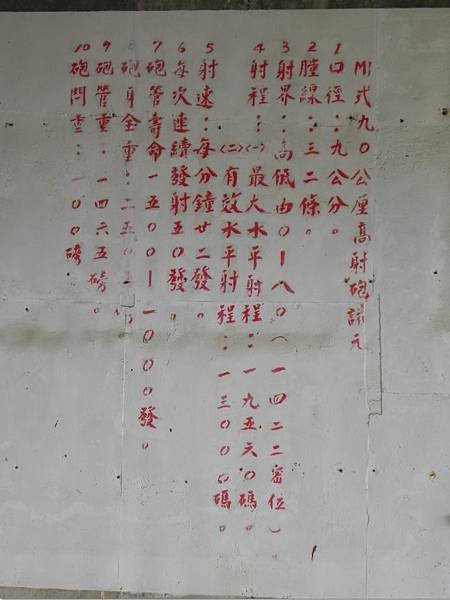 M1式九0公厘高射砲諸元
1口徑：九公分。
2膛線：三二條。
3射界：高低由0—八0（一四二二密位）。
4射程：(一)最大水平射程：一九五六0碼。
(二)有效水平射程：一三000碼。
5射速：每分鐘廿二發。
6每次連續發射五0發。
7砲管壽命一五00—一000發。
8砲身全重：二五0
9砲管重：一四六五磅。
10砲閂重：一00磅。